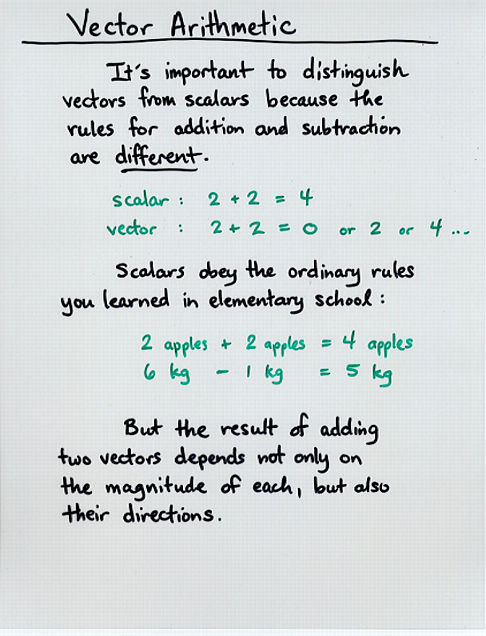 Vector Arithmetic
It's important to distinguish
vectors from scalars because the
rules for addition and subtraction
are different.
scalar : 2 + 2 = 4
vector : 2 + 2 = 0 or 2 or 4 ...
Scalars obey the ordinary rules
you learned in elementary school :
2 apples + 2 apples = 4 apples
6 kg - 1 kg = 5 kg
But the result of adding
two vectors depends not only on
the magnitude of each, but also
their directions.